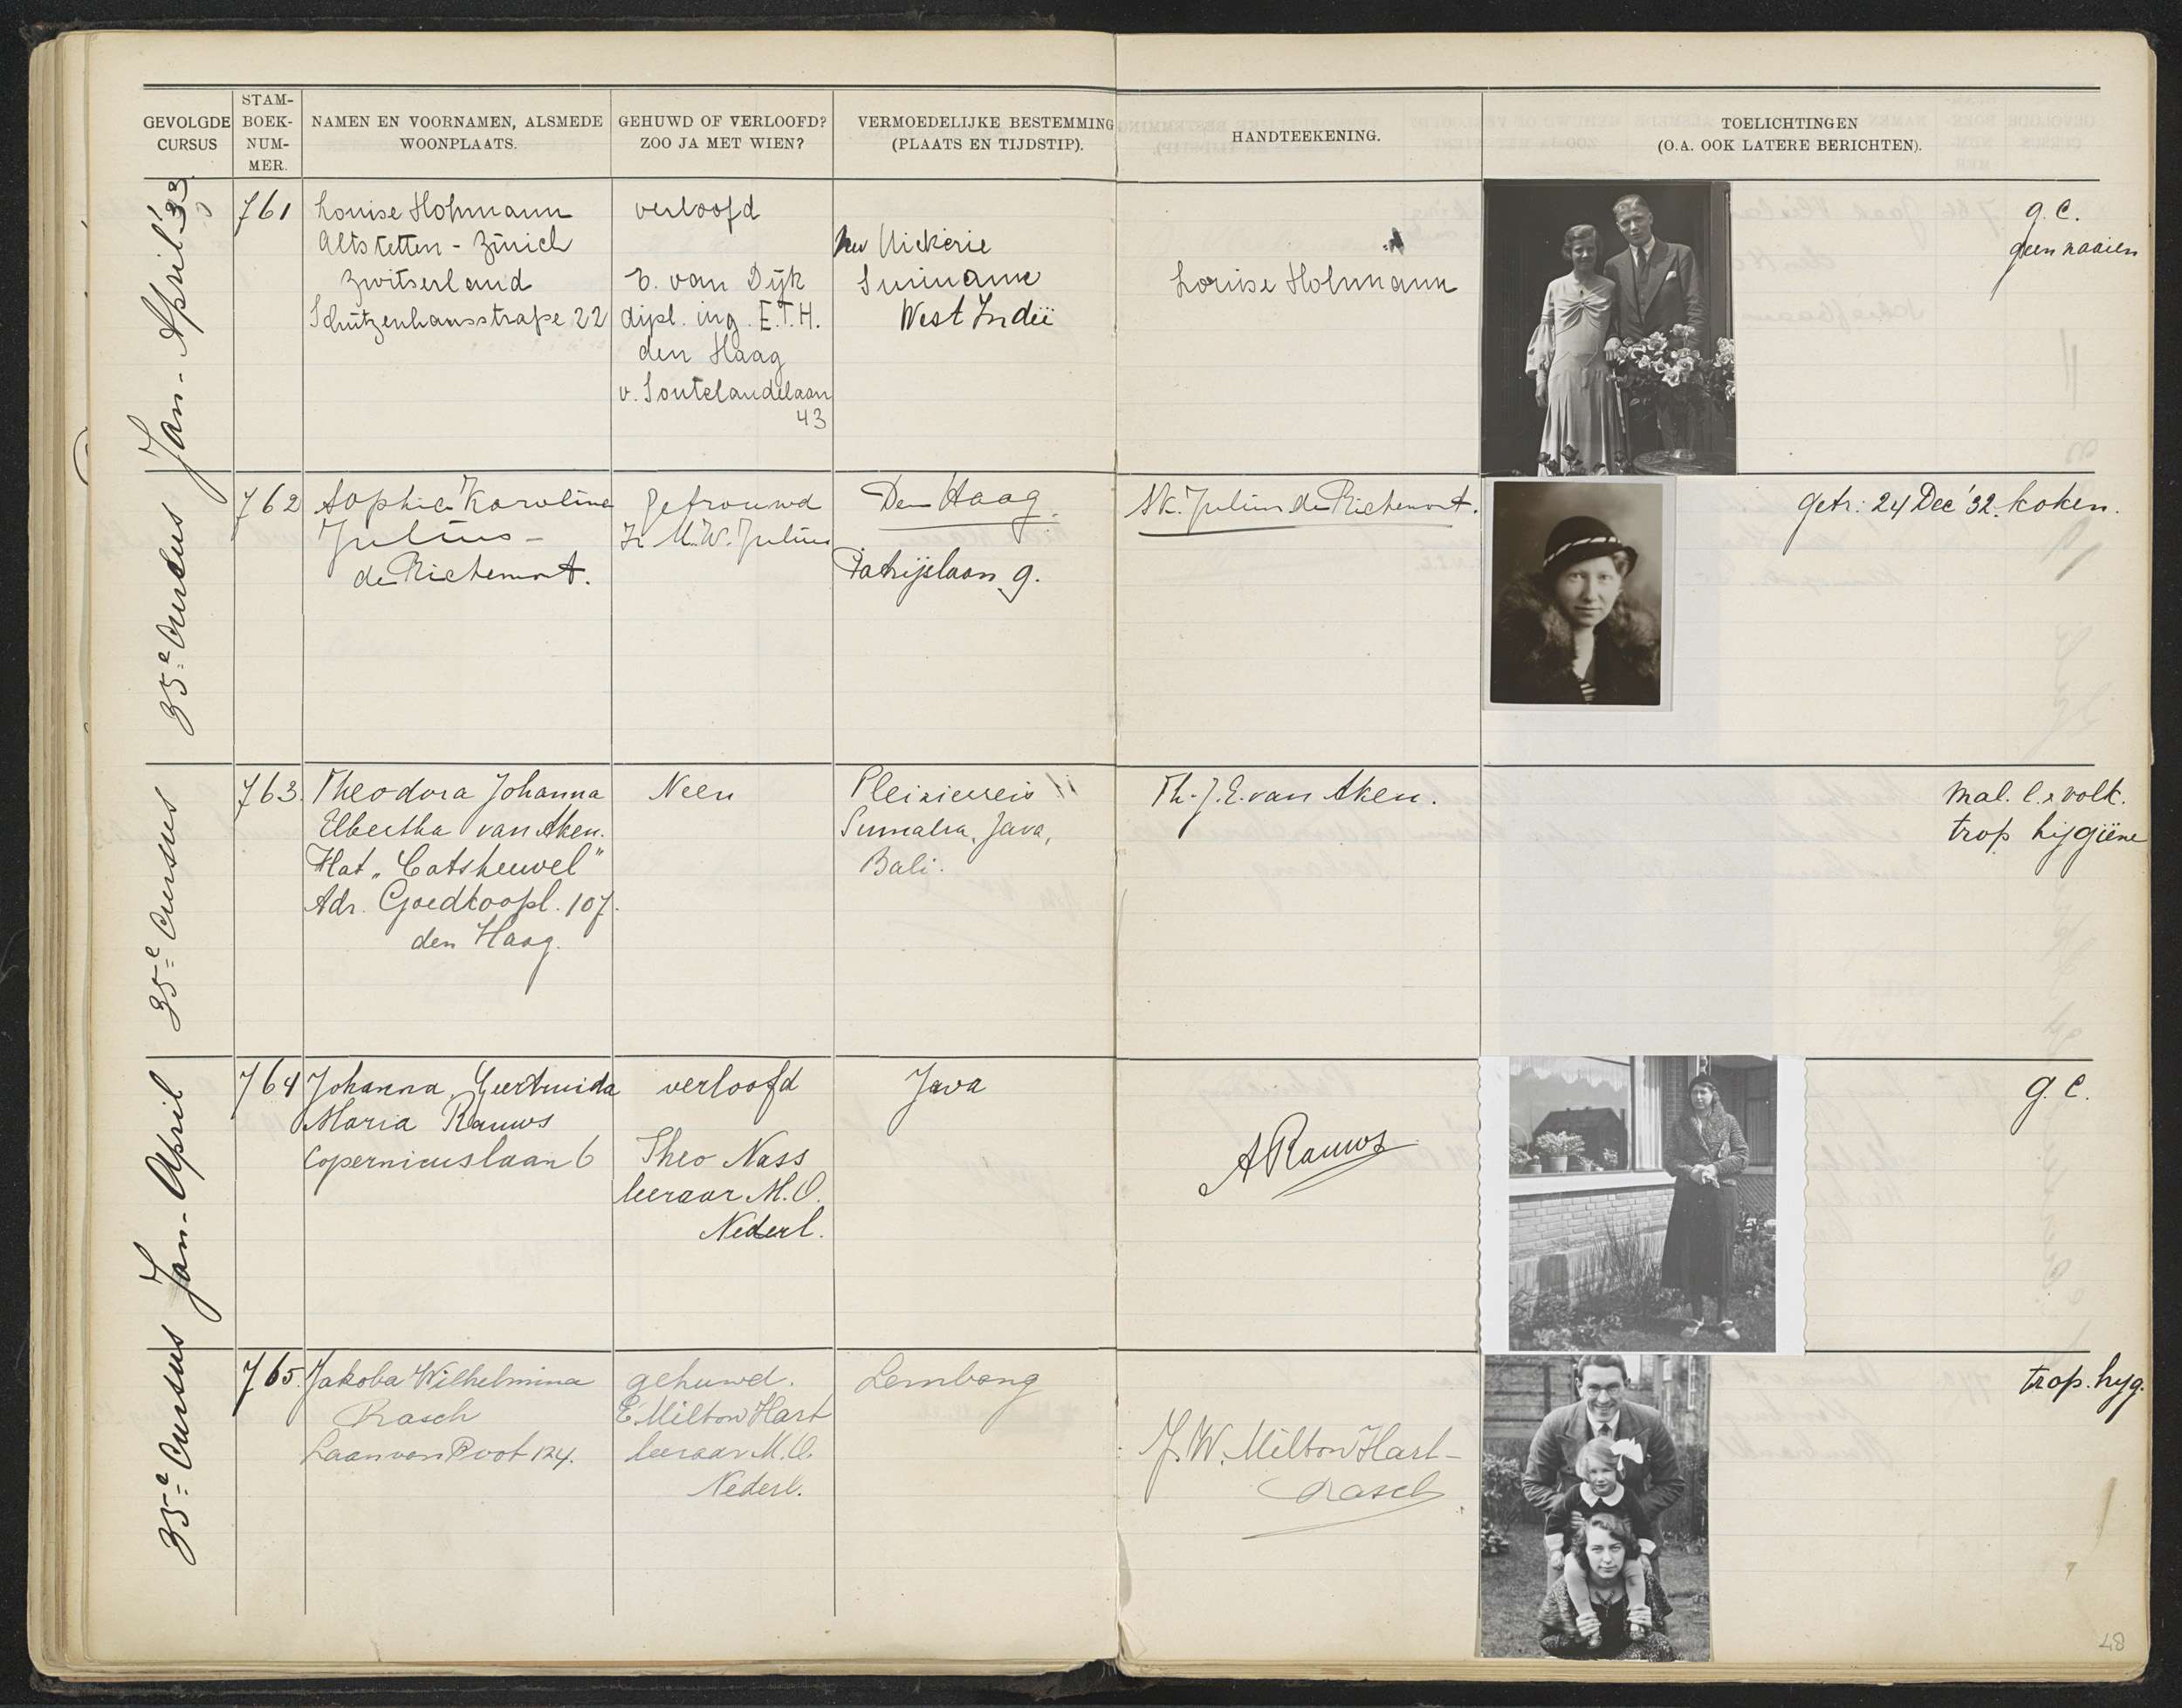 GEVOLGDE CURSUS
STAM-BOEK-NUM-MER.
NAMEN EN VOORNAMEN, ALSMEDE WOONPLAATS.
GEHUWD OF VERLOOFD? ZOO JA MET WIEN?
VERMOEDELIJKE BESTEMMING (PLAATS EN TIJDSTIP).
HANDTEEKENING.
TOELICHTINGEN
(O.A. OOK LATERE BERICHTEN).
35e Cursus Jan.-April '33
761
Louise Hohmann
Altstetten - Zürich
Zwitserland
Schützenhausstraße 22
verloofd
E. van Dijk
dipl. ing. E.T.H.
den Haag
v. Soutelandelaan
43
Nickerie
Suriname
West Indië
Louise Hohmann
g.c.
geen naaien
762
Sophia Karoline
Julius-
de Richemont.
Getrouwd
Ir M.W. Julius
Den Haag.
Patrijslaan 9.
SK. Julius de Richemont.
getr: 24 Dec '32. koken.
35e Cursus
763.
Theodora Johanna
Elbertha van Aken.
Flat „Catsheuvel"
Adr. Goedkoopl. 107.
den Haag.
Neen
Pleizierreis
Sumatra, Java,
Bali.
Th. J. E. van Aken.
mal. l. & volk.
trop hijgiëne
35e Cursus Jan.-April
764
Johanna Geertruida
Maria Rauws
Copernicuslaan 6
verloofd
Theo Nass
leeraar M.O.
Nederl.
Java
A Rauws
g. c.
765.
Jakoba Wilhelmina
Rasch
Laan van Poot 124.
gehuwd.
E. Milton Hart
leeraar M.O.
Nederl.
Lembang
J. W. Milton Hart-
Rasch
trop. hyg.
48